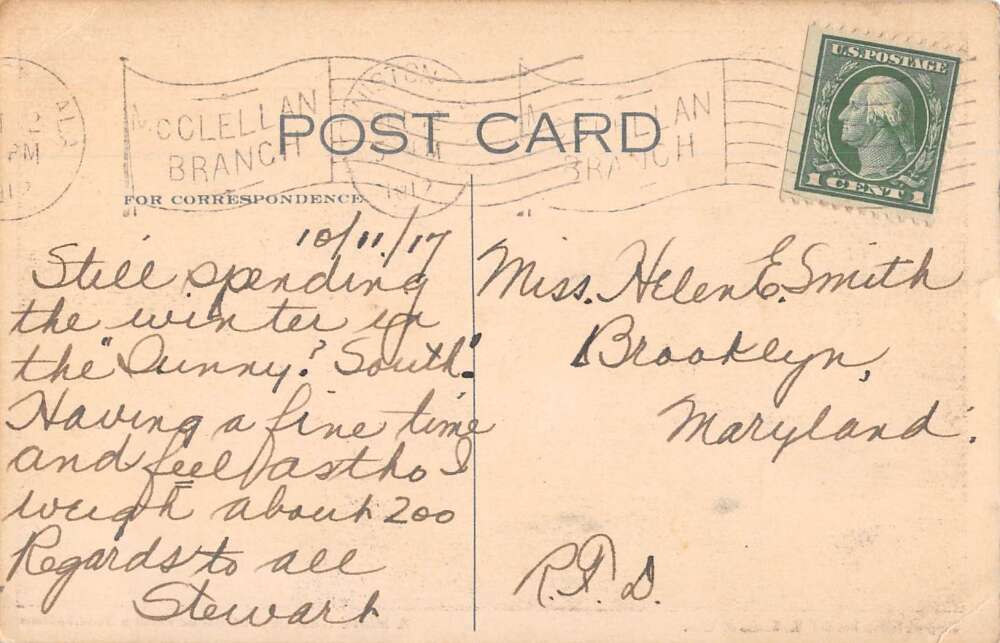 McCLELLAN
BRANCH
ANNISTON
ALA.
PM
1917
McCLELLAN
BRANCH
U.S. POSTAGE
1 CENT 1
POST CARD
FOR CORRESPONDENCE
10/11/17
Still spending
the winter in
the "Sunny? South."
Having a fine time
and feel as tho I
weigh about 200
Regards to all
Stewart
Miss. Helen E. Smith
Brooklyn,
Maryland.
R.F.D.